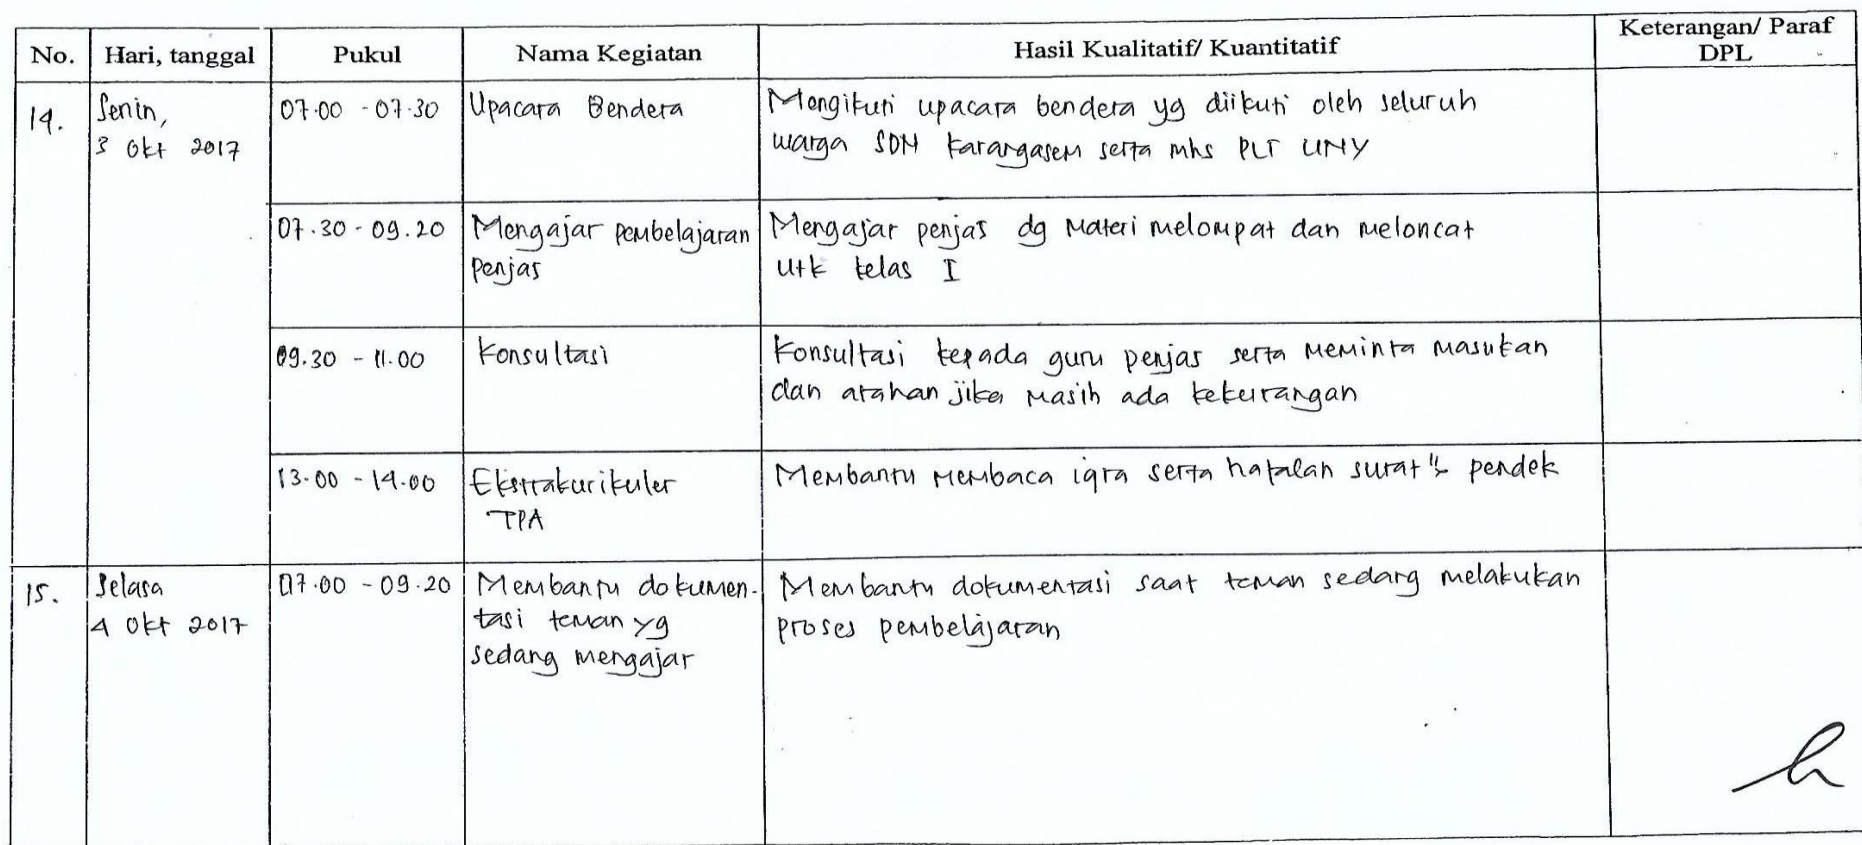 No. Hari, tanggal Pukul Nama Kegiatan Hasil Kualitatif/ Kuantitatif Keterangan/ Paraf
DPL
14. Senin, 07.00 - 07.30 Upacara Bendera Mengikuti upacara bendera yg diikuti oleh seluruh
3 Okt 2017 warga SDN Karangasem serta mhs PLT UNY
07.30 - 09.20 Mengajar pembelajaran Mengajar penjas dg Materi melompat dan meloncat
penjas utk kelas I
09.30 - 11.00 Konsultasi Konsultasi kepada guru penjas serta meminta masukan
dan arahan jika masih ada kekurangan
13.00 - 14.00 Ekstrakurikuler Membantu membaca iqra serta hafalan surat"2 pendek
TPA
15. Selasa 07.00 - 09.20 Membantu dokumen- Membantu dokumentasi saat teman sedang melakukan
4 Okt 2017 tasi teman yg proses pembelajaran
sedang mengajar